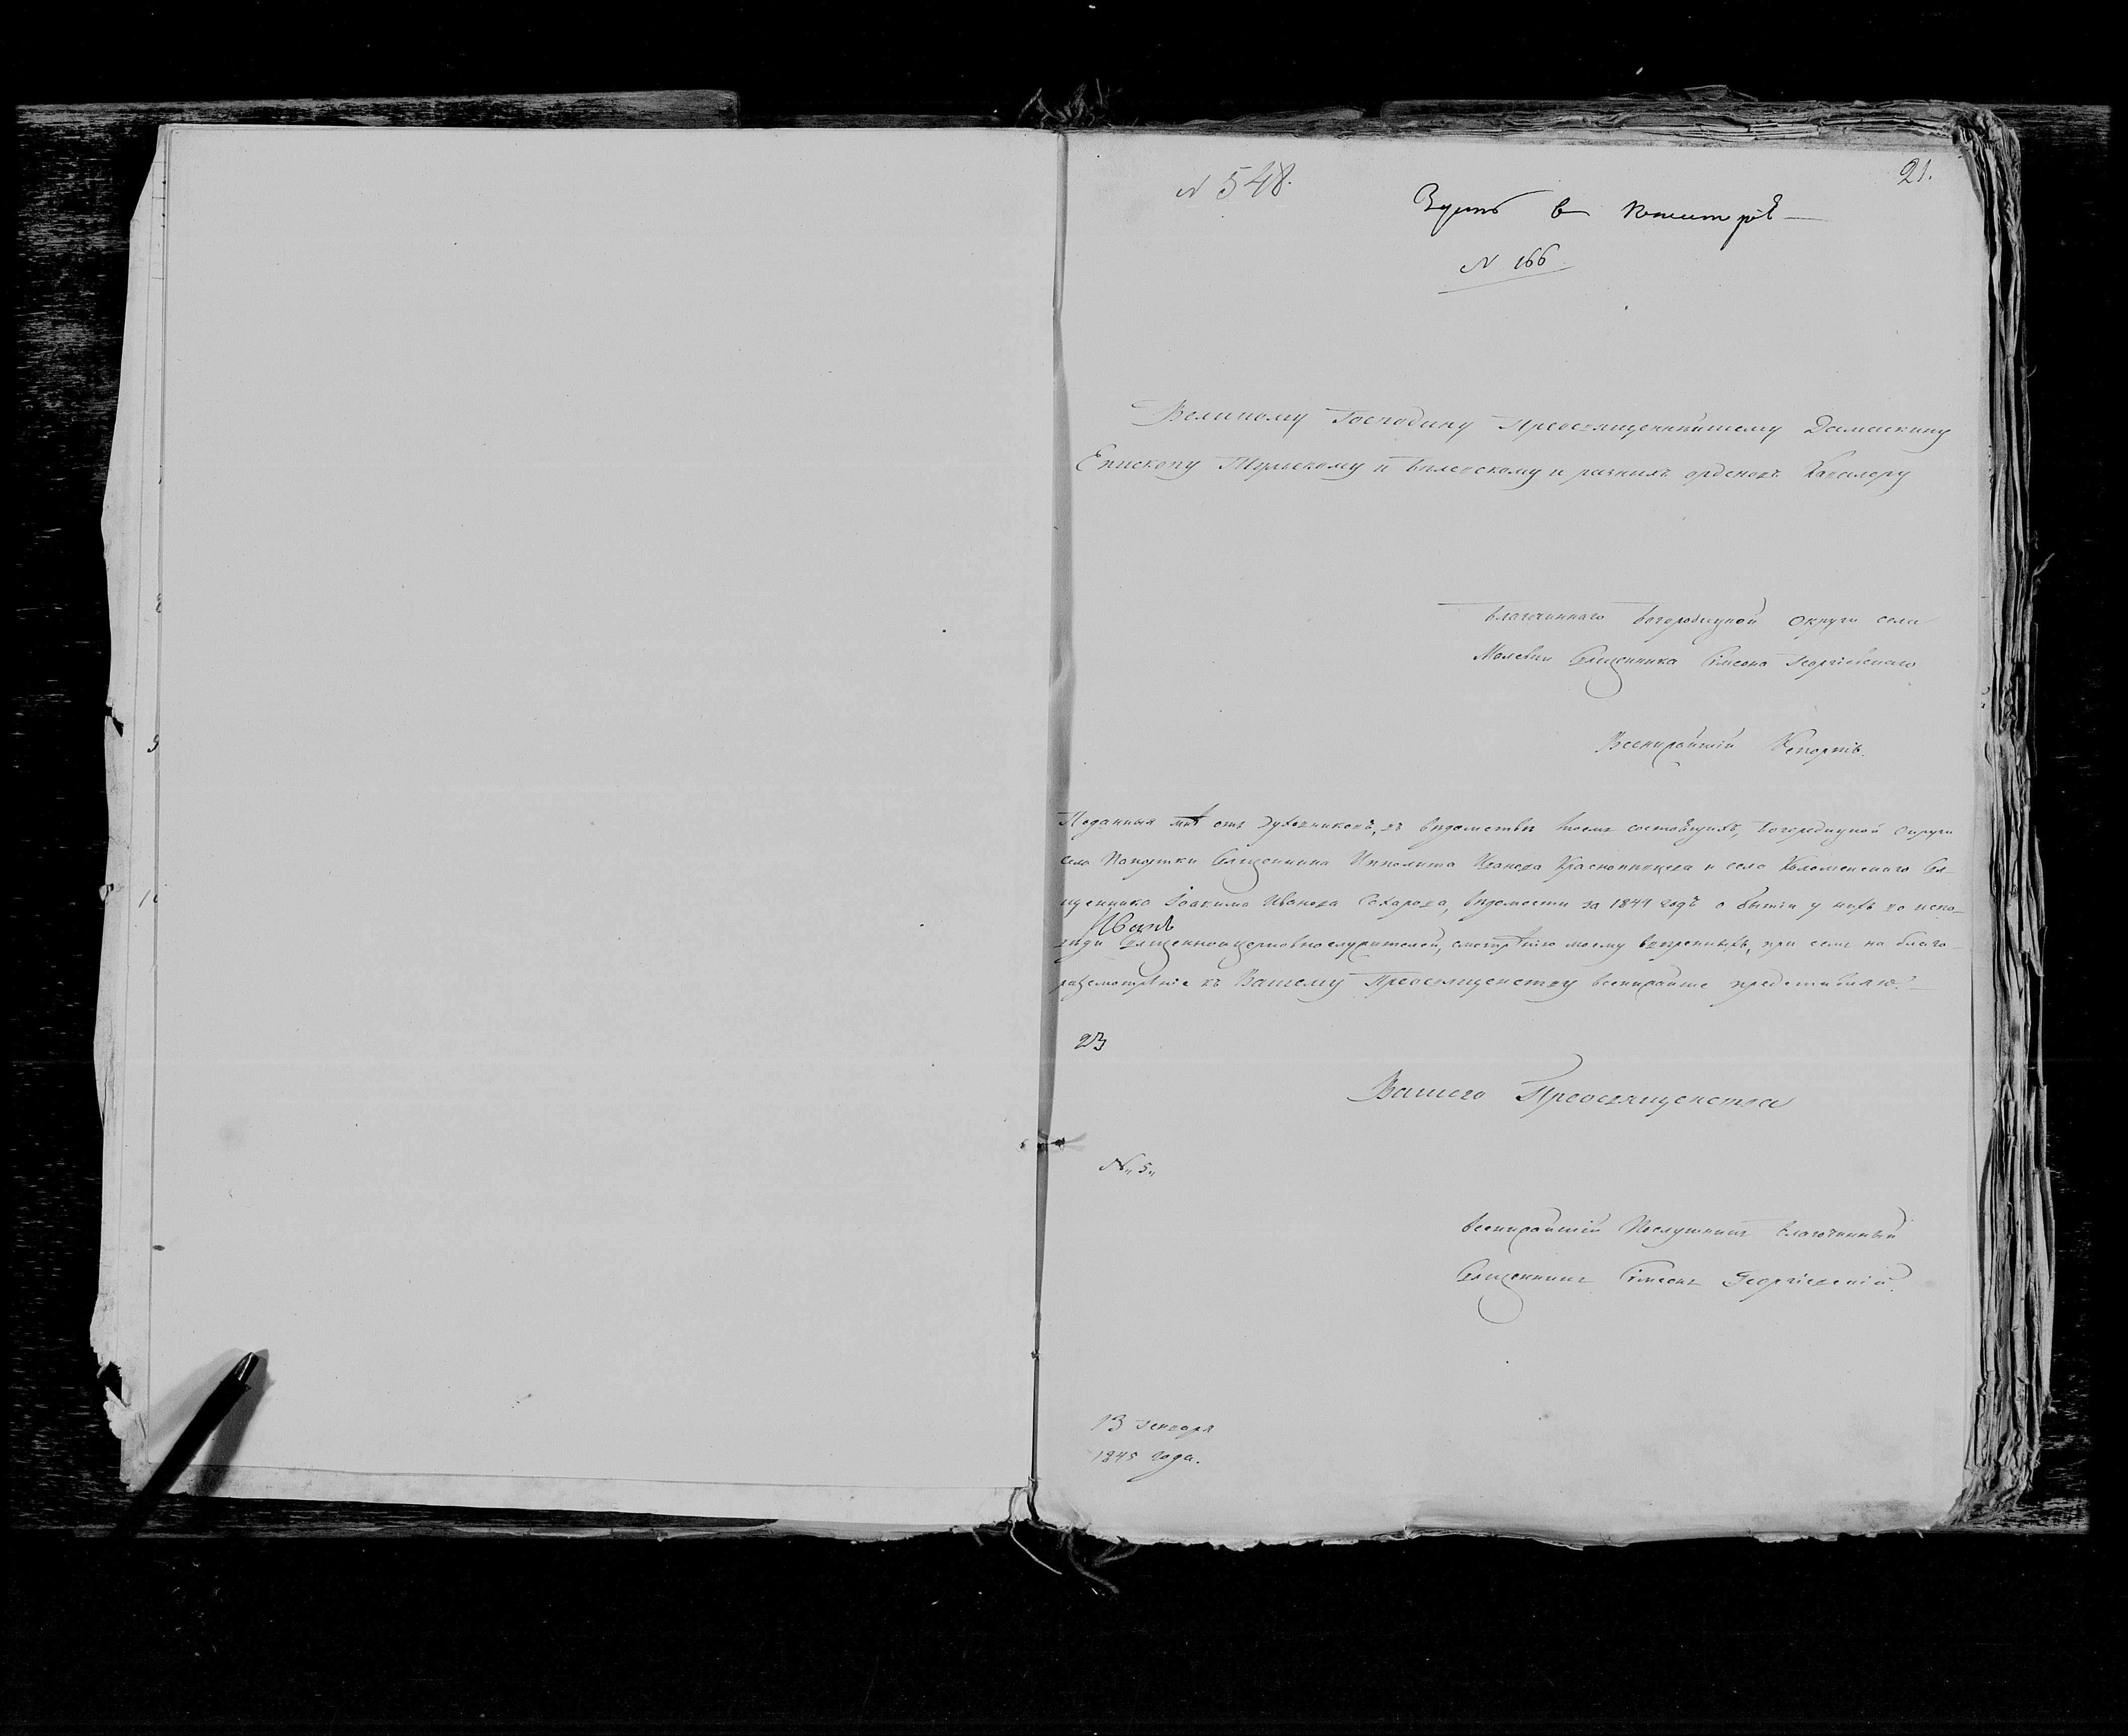 21.
N 548.
N 166
Великому Господину Преосвященнѣйшему Дамаскину
Епископу Тульскому и Бѣлевскому и разныхъ орденовъ Кавалеру
Благочиннаго Богородицкой округи села
Священника Симеона Георгіевскаго
Всенижайшій Репортъ.
Поданныя мнѣ отъ духовниковъ, въ вѣдомствѣ моемъ состоящихъ, Богородицкой округи
села Папортки Священника Ипполита Иванова и села Коломенскаго Свя-
щенника Іоакима Иванова Сахарова, вѣдомости за 1844 годъ о бытіи у нихъ во испо-
вѣди Священноицерковнослужителей, смотрѣнію моему ввѣренныхъ, при семъ на благо-
разсмотрѣніе къ Вашему Преосвященству всенижайше представляю.
23
Вашего Преосвященства
N „5„
Всенижайшій Послушникъ Благочинный
Священникъ Симеонъ Георгіевскій.
13 Генваря
1845 года.